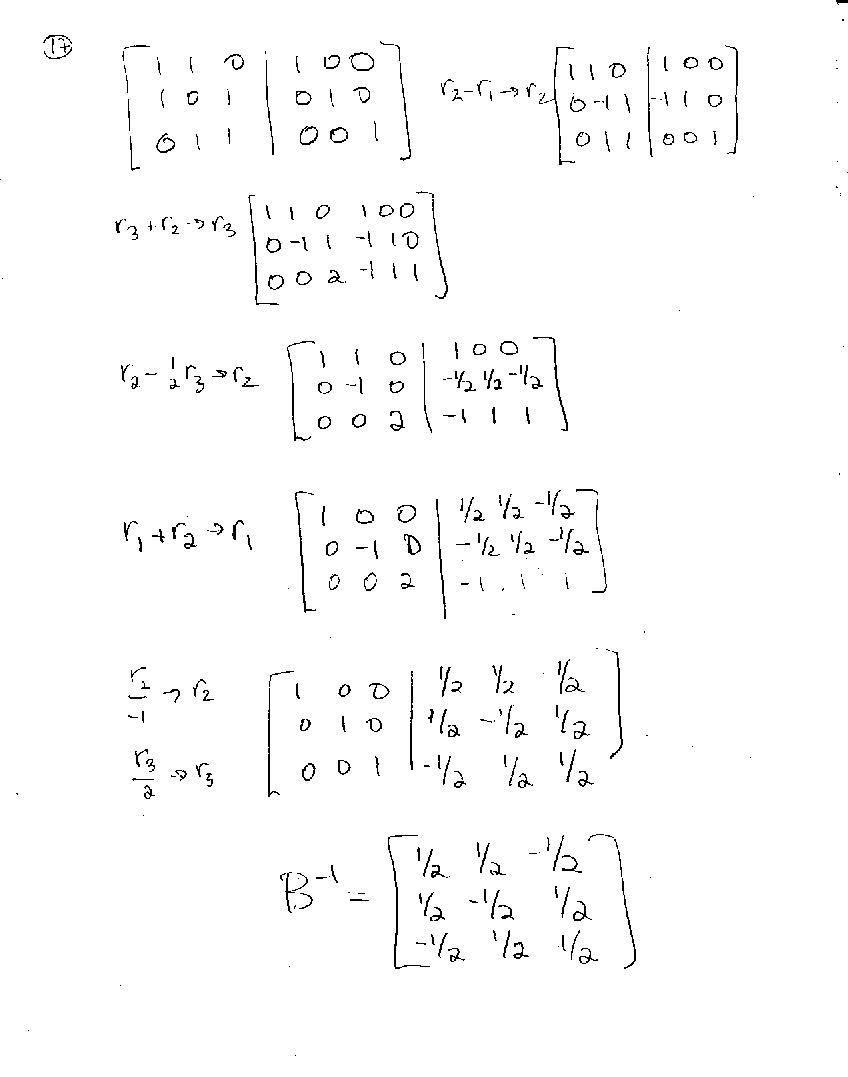 17
[ 1 1 0 | 1 0 0 ] r₂-r₁→r₂ [ 1 1 0 | 1 0 0 ]
[ 1 0 1 | 0 1 0 ] [ 0 -1 1 | -1 1 0 ]
[ 0 1 1 | 0 0 1 ] [ 0 1 1 | 0 0 1 ]
r₃+r₂→r₃ [ 1 1 0 1 0 0 ]
[ 0 -1 1 -1 1 0 ]
[ 0 0 2 -1 1 1 ]
r₂-½r₃→r₂ [ 1 1 0 | 1 0 0 ]
[ 0 -1 0 | -1/2 1/2 -1/2 ]
[ 0 0 2 | -1 1 1 ]
r₁+r₂→r₁ [ 1 0 0 | 1/2 1/2 -1/2 ]
[ 0 -1 0 | -1/2 1/2 -1/2 ]
[ 0 0 2 | -1 1 1 ]
r₂/-1→r₂ [ 1 0 0 | 1/2 1/2 1/2 ]
[ 0 1 0 | 1/2 -1/2 1/2 ]
r₃/2→r₃ [ 0 0 1 | -1/2 1/2 1/2 ]
B⁻¹= [ 1/2 1/2 -1/2 ]
[ 1/2 -1/2 1/2 ]
[ -1/2 1/2 1/2 ]